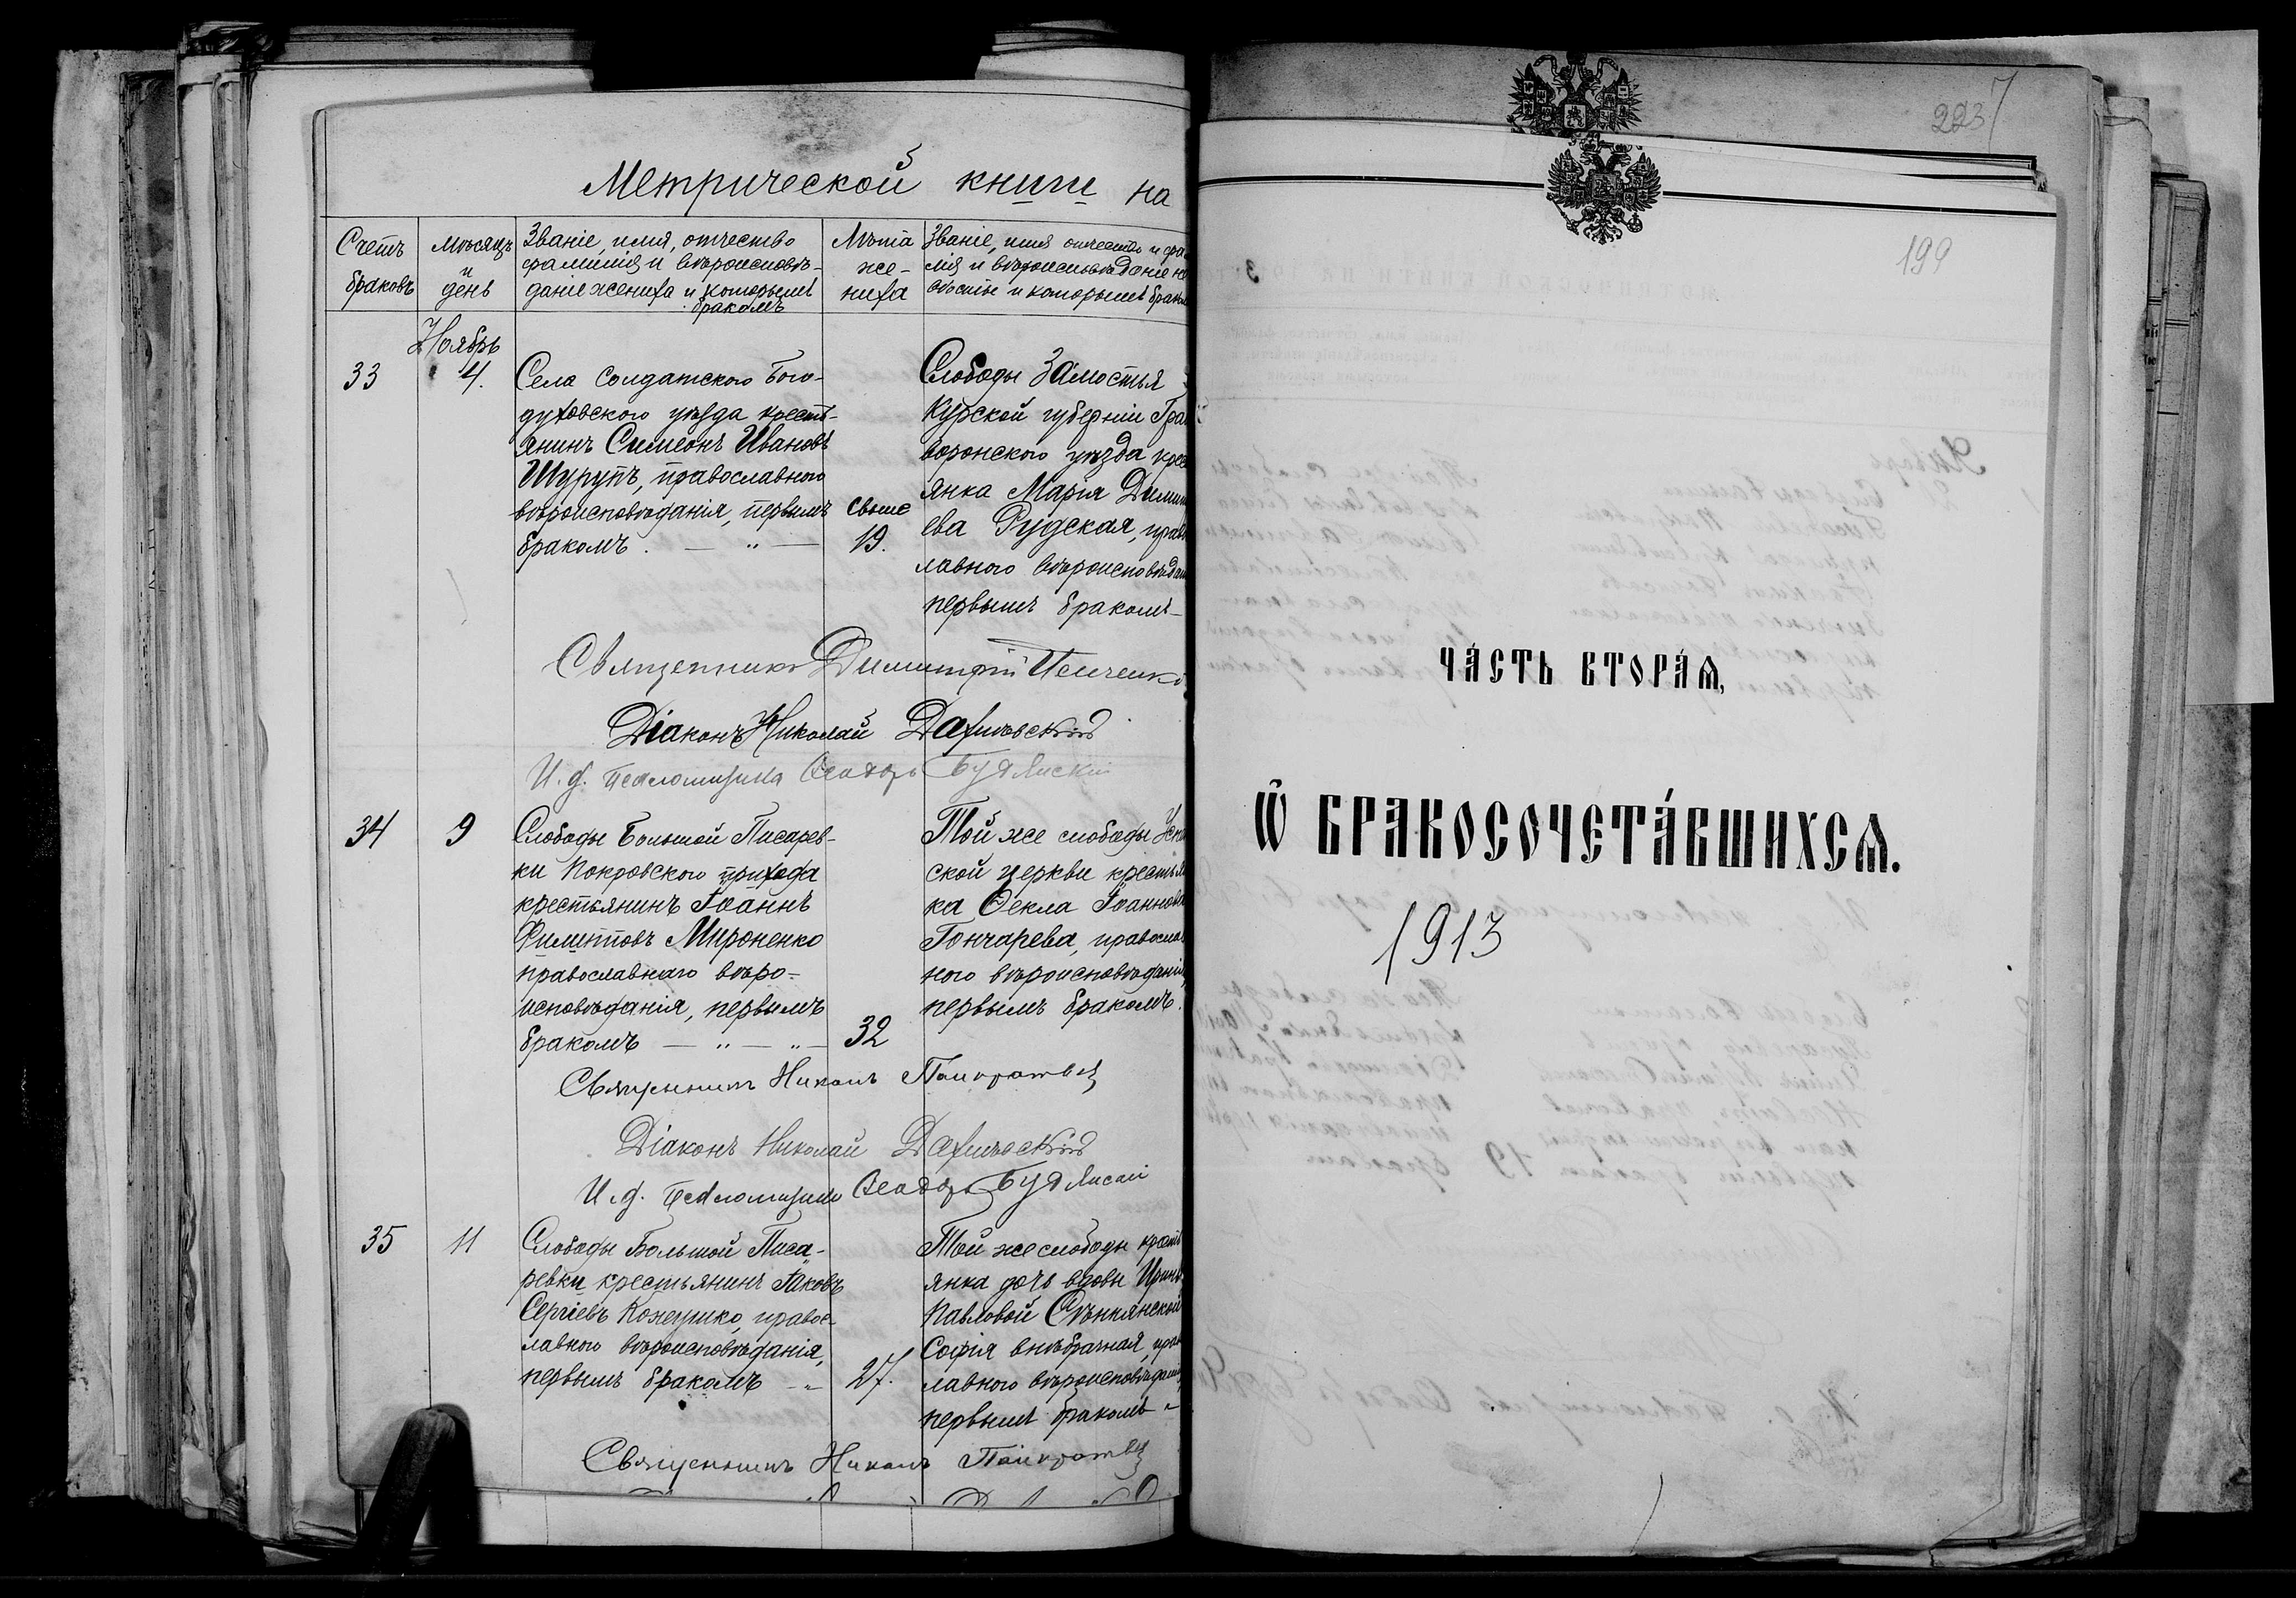 Метрической книги на
Счетъ браковъ
Мѣсяцъ и день
Званіе, имя, отчество
фамилія и вѣроисповѣ-
даніе жениха и которымъ
бракомъ
Лѣта
же-
ниха
Званіе, имя отчество и фа
лія и вѣроисповѣданіе не
вѣсты и которымъ брако
Ноябрь
33
4.
Села Солдатского Бого-
духовского уѣзда кресть-
янинъ Симеонъ Ивановъ
Шурупъ, православного
вѣроисповѣданія, первымъ
бракомъ.
свыше
19.
Слободы Замостья
Курской губерніи Гра
воронского уѣзда крес
янка Марія Дими
ева Рудская, прав
лавного вѣроисповѣдан
первымъ бракомъ
Священникъ Димитрій
Діаконъ Николай
И. д. Псаломщика Ѳеодоръ Будянскій
34
9
Слободы Большой Писарев-
ки Покровского прихода
крестьянинъ Іоаннъ
Филипповъ Мироненко
православнаго вѣро-
исповѣданія, первымъ
бракомъ
32
Той же слободы Успе
ской церкви крестья
ка Ѳекла Іоаннова
Гончарева, православ
ного вѣроисповѣданія,
первымъ бракомъ.
Священникъ
Діаконъ Николай
И. д. Псаломщика Ѳеодоръ Будянскій
35
11
Слободы Большой Писа-
ревки крестьянинъ Іаковъ
Сергіевъ Кожушко, правос-
лавного вѣроисповѣданія,
первымъ бракомъ
27.
Той же слободы крестъ
янка дочь вдовы Ирины
Павловой
Софія внѣбрачная, прав
лавного вѣроисповѣданія,
первымъ бракомъ
Священникъ
223
7
199
ЧА́СТЬ ВТОРА́Ѧ,
Ѽ БРАКОСОЧЕТА́ВШИХСѦ.
1913